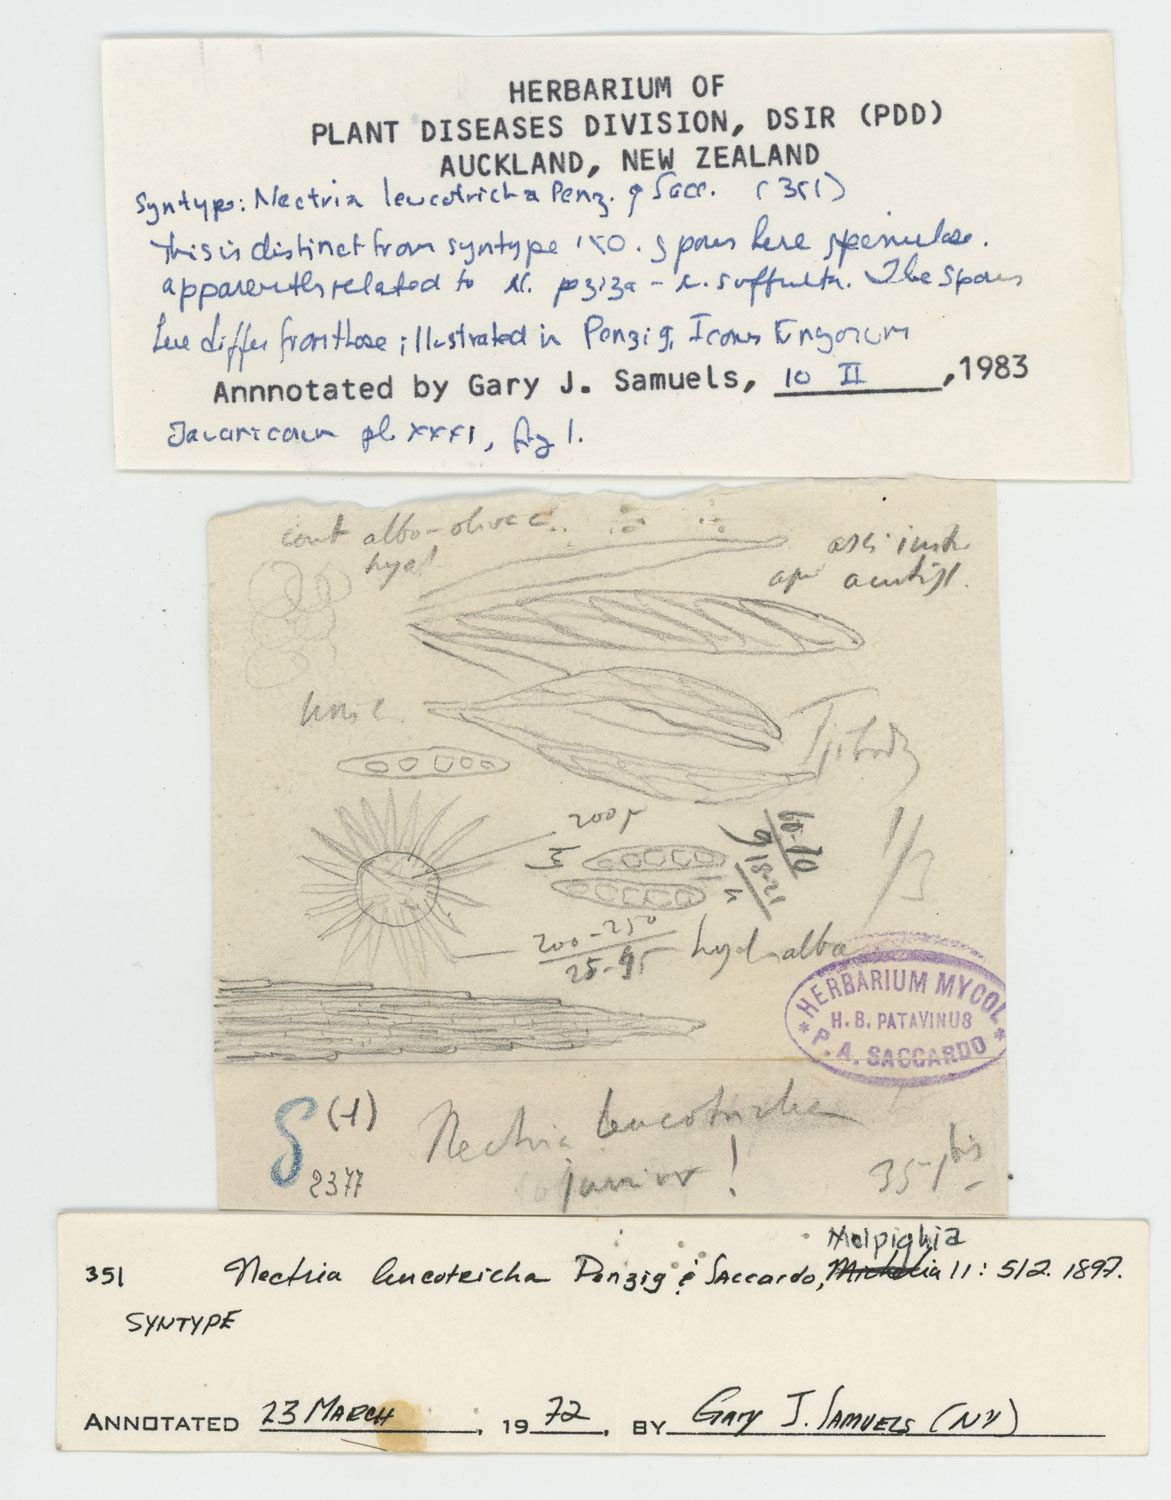 HERBARIUM OF
PLANT DISEASES DIVISION, DSIR (PDD)
AUCKLAND, NEW ZEALAND
Syntype: Nectria leucotricha Penz. & Sacc. (351)
This is distinct from syntype 150. Spores here spinulose.
apparently related to N. peziza - N. suffulta. The spores
here differ from those illustrated in Penzig, Icones Fungorum
Annnotated by Gary J. Samuels, 10 II ,1983
Javanicorum pl. XXXI, fig 1.
cont albo-olivac.
hyal.
asci
acutiss.
Tjibodas
200μ
1/3
60-70
9
18-21
200-250
25-45
hyal-alba
HERBARIUM MYCOL
H. B. PATAVINUS
P. A. SACCARDO
δ (1)
2377
Nectria leucotricha
junior!
351 bis
Malpighia
351 Nectria leucotricha Penzig & Saccardo, Michelia 11: 512. 1897.
SYNTYPE
ANNOTATED 23 MARCH , 19 72 , BY Gary J. SAMUELS (NY)